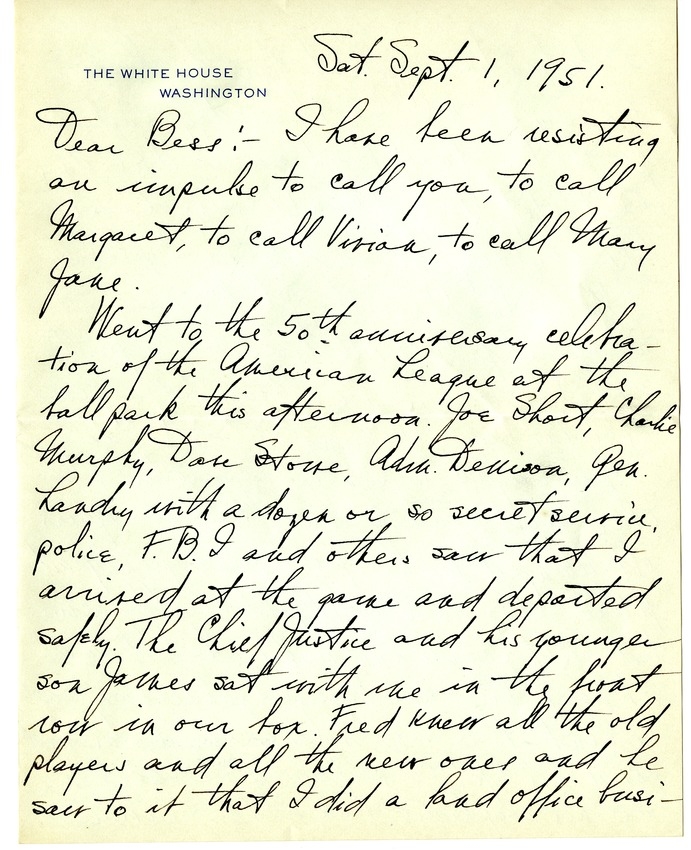 THE WHITE HOUSE
WASHINGTON
Sat. Sept. 1, 1951.
Dear Bess:- I have been resisting
an impulse to call you, to call
Margaret, to call Vivian, to call Mary
Jane.
Went to the 50th anniversary celebra-
tion of the American League at the
ball park this afternoon. Joe Short, Charlie
Murphy, Dave Stowe, Adm. Dennison, Gen.
Landry with a dozen or so secret service,
police, F.B.I and others saw that I
arrived at the game and departed
safely. The Chief Justice and his younger
son James sat with me in the front
row in our box. Fred knew all the old
players and all the new ones and he
saw to it that I did a land office busi-